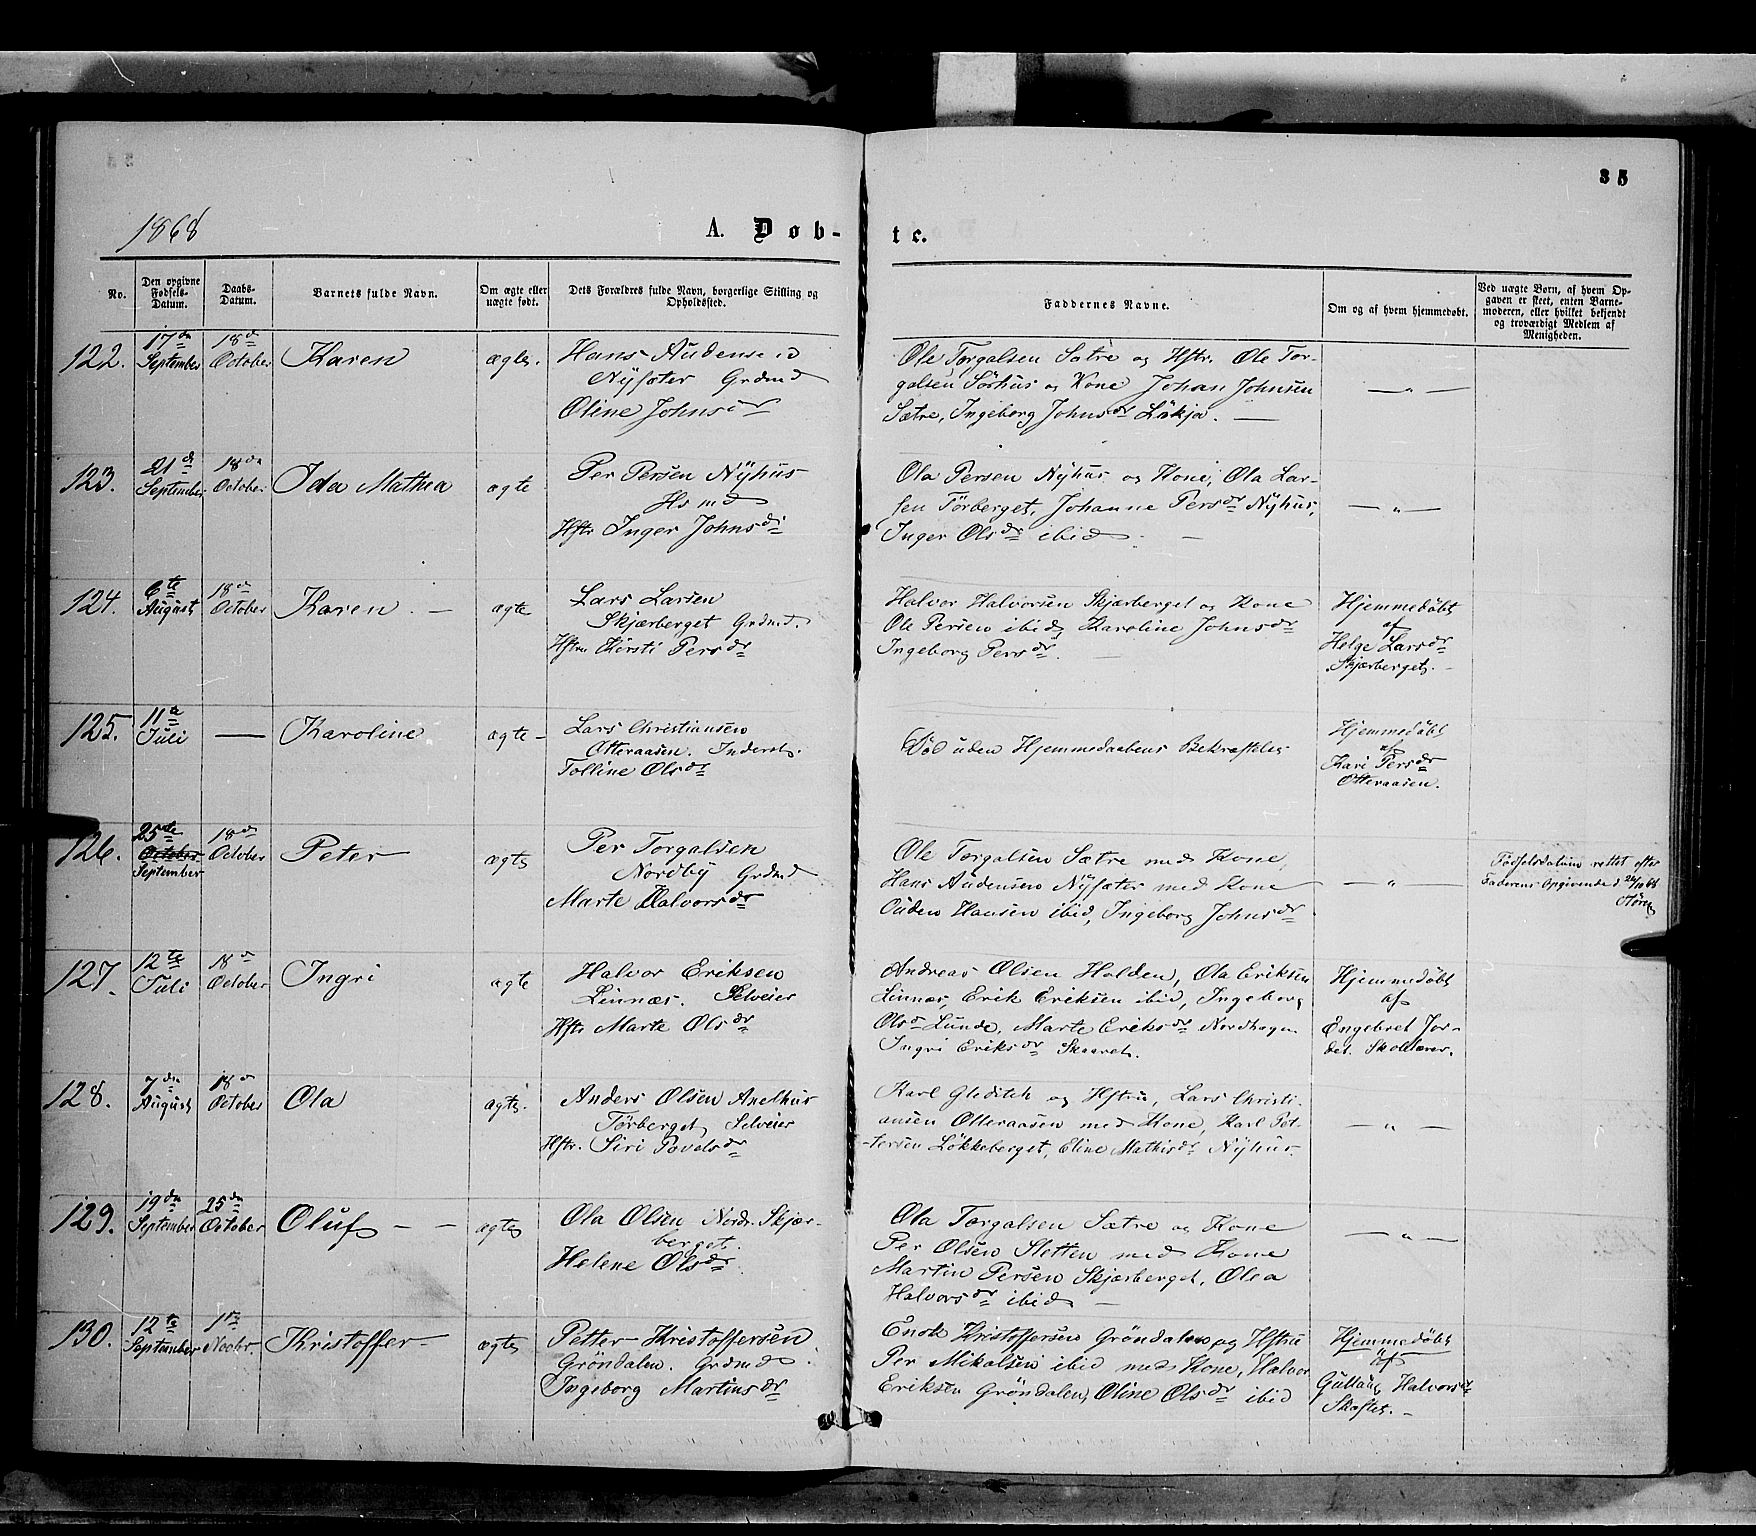 35
1868
A. Døb-
te.
No.
Den opgivne Fødsels-Datum.
Daabs-Datum.
Barnets fulde Navn.
Om ægte eller uægte født.
Dets Forældres fulde Navn, borgerlige Stilling og Opholdssted.
Faddernes Navne.
Om og af hvem hjemmedøbt.
Ved uægte Børn, af hvem Opgaven er skeet, enten Barnemoderen, eller hvilket bekjendt og troværdigt Medlem af Menigheden.
122. 17de September 18de October Karen ægte.
Hans Audensen
Nysæter Grdmd
Oline Johnsdr
Ole Torgalsen Sætre og Hstr. Ole Tor-
galsen Sørhus og Kone Johan Johnsen
Sætre, Ingeborg Johnsdr Løkja. —
— " —
123. 21de September 18de October Ida Mathea ægte
Per Persen Nyhus
Hsmd
Hstr Inger Johnsdr
Ola Persen Nyhus og Kone, Ola Lar-
sen Törberget, Johanne Persdr Nyhus,
Inger Olsdr ibid. —
— " —
124. 6te August 18de October Karen. — ægte
Lars Larsen
Skjærberget Grdmd.
Hstru Kirsti Persdr
Halvor Halvorsen Skjærberget og Kone
Ole Persen ibid, Karoline Johnsdr
Ingeborg Persdr. —
Hjemmedøbt
af
Helge Larsdr
Skjærberget. -
125. 11te Juli — Karoline ægte -
Lars Christiansen
Otteraasen. Inderst.
Tolline Olsdr
Død uden Hjemmedaabens Bekræftelse
Hjemmedøbt
af
Kari Persdr
Otteraasen.
126. 25de October September 18de October Peter ægte
Per Torgalsen
Nordby Grdmd
Marte Halvorsdr
Ole Torgalsen Sætre med Kone,
Hans Audensen Nysæter med Kone
Ouden Hansen ibid, Ingeborg Johnsdr
— " —
Fødselsdatum rettet efter
Faderens Opgivende d
127. 12te Juli 18de October Ingri ægte
Halvor Eriksen
Linnæs. Selveier
Hstr Marte Olsdr
Andreas Olsen Holden, Ola Eriksen
Linnæs, Erik Eriksen ibid, Ingeborg
Olsdr Lunde, Marte Eriksdr Nordhagen
Ingri Eriksdr Skaaret.
Hjemmedøbt
af
Engebret Jor-
det. Skolelærer.
128. 7de August 18de October Ola ægte.
Anders Olsen Anelhus
Törberget, Selveier
Hstr. Siri Povelsdr
Karl Gleditch og Hstru, Lars Christi-
ansen Otteraasen med Kone, Karl Pet-
tersen Løkkeberget, Eline Mathisdr Nyhus.
— " —
129. 19de September 25de October Oluf — — ægte
Ola Olsen Nordr. Skjær-
berget.
Helene Olsdr.
Ola Torgalsen Sætre og Kone
Per Olsen Sletten med Kone
Martin Persen Skjærberget, Olea
Halvorsdr ibid —
— " —
130. 12te September 1ste Novbr. Kristoffer — ægte
Petter Kristoffersen
Gröndalen. Grdmd.
Ingeborg Martinsdr
Enok Kristoffersen Gröndalen og Hstru
Per Mikalsen ibid med Kone, Halvor
Eriksen Gröndalen, Oline Olsdr ibid
Hjemmedøbt
af
Halvorsdr